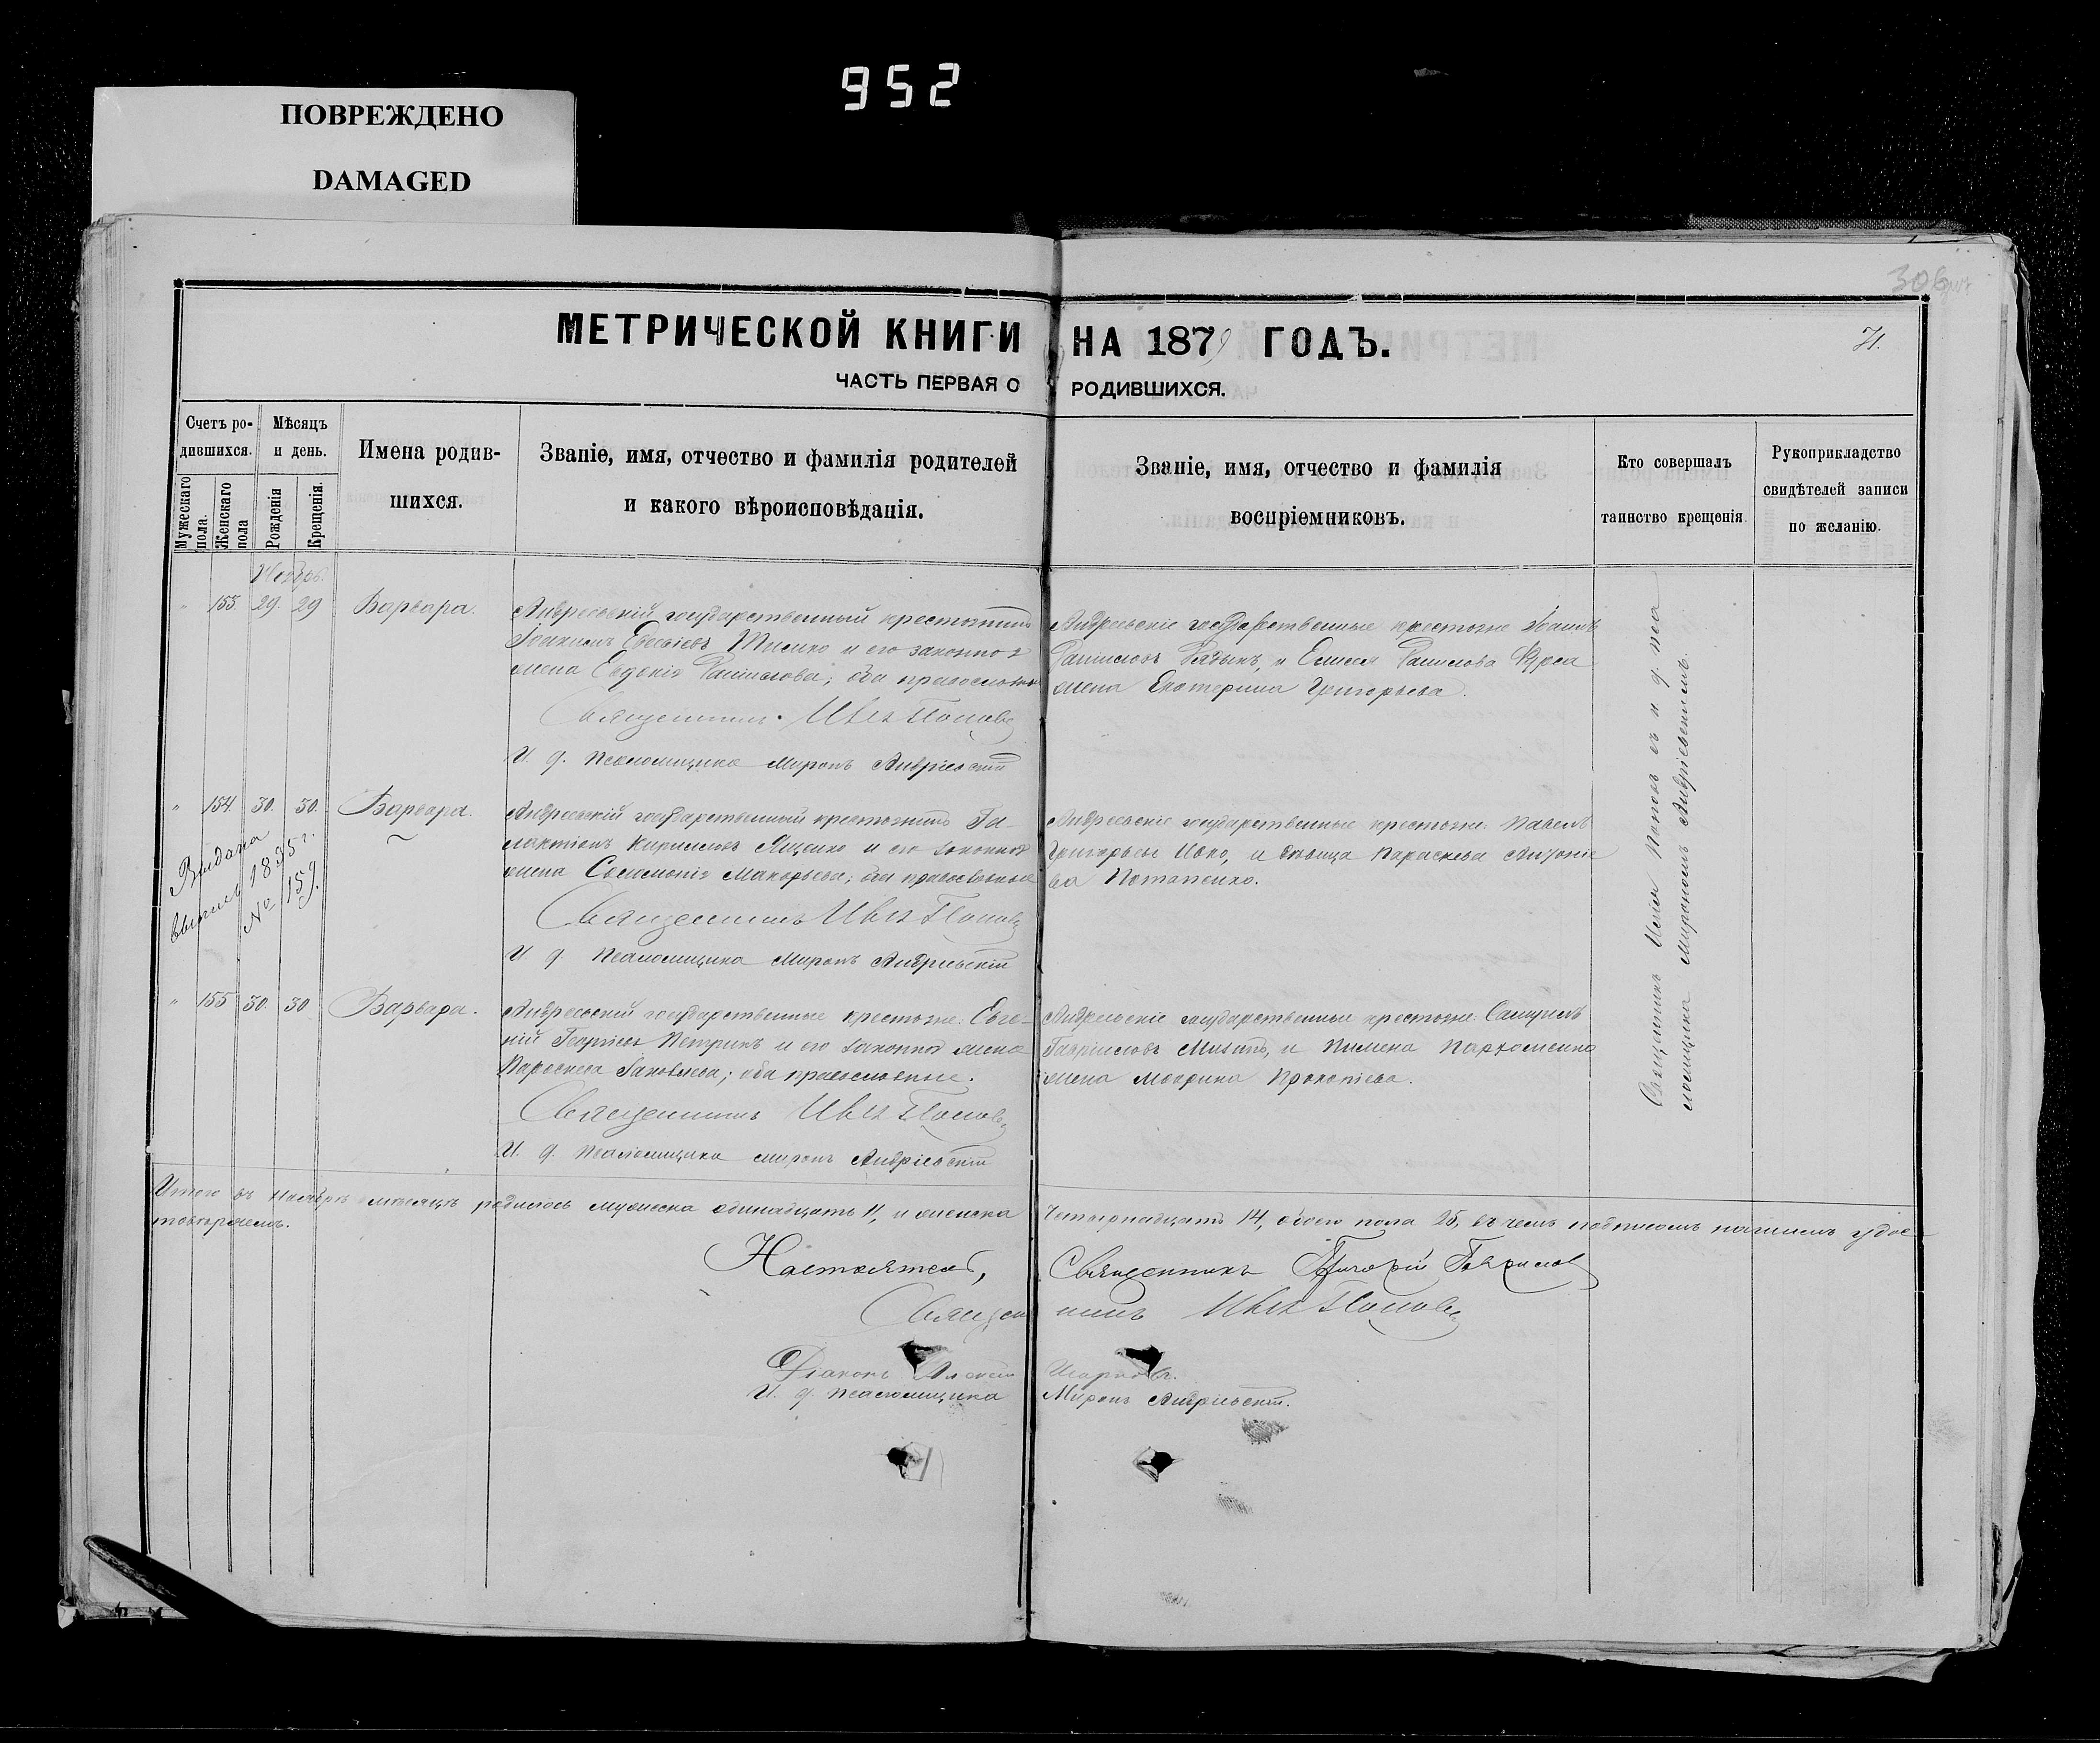 952
ПОВРЕЖДЕНО
DAMAGED
306
МЕТРИЧЕСКОЙ КНИГИ НА 1879 ГОДЪ.
71.
ЧАСТЬ ПЕРВАЯ О РОДИВШИХСЯ.
Счетъ ро-
дившихся.
Мужескаго пола.
Женскаго пола
Мѣсяцъ
и день.
Рожденія
Крещенія.
Имена родив-
шихся.
Званіе, имя, отчество и фамилія родителей
и какого вѣроисповѣданія.
Званіе, имя, отчество и фамилія
воспріемниковъ.
Кто совершалъ
таинство крещенія
Рукоприкладство
свидѣтелей записи
по желанію.
Ноябрь.
" 153. 29. 29 Варвара.
Андреевскій государственный крестьянинъ
Іоакимъ Евсѣевъ и его законная
жена Евдокія Даніилова; оба православные
Священникъ Попов
И. д. псаломщика Миронъ Андріевскій
Андреевскіе государственные крестьяне Іоаннъ
Даніиловъ и Данилова
жена Екатерина Григорьева.
" 154 30. 30. Варвара.
Выдана
выпись 1895 г.
№ 159.
Андреевскій государственный крестьянинъ Га-
лактіонъ Кирилловъ Яценко и его законная
жена Соломонія Макарьева; оба православные
Священникъ Попов
И. д. псаломщика Миронъ Андріевскій
Андреевскіе государственные крестьяне: Павелъ
Григорьевъ Ивко, и дѣвица Параскева Антоніе
ва Потапенко.
" 155 30. 30 Варвара.
Андреевскій государственные крестьяне: Евге-
ній Георгіевъ Петрикъ и его законная жена
Параскева Яковлева; оба православные.
Священникъ Попов
И. д. псаломщика Миронъ Андріевскій
Андреевскіе государственные крестьяне: Самуилъ
Гавріиловъ и Пимена Пархоменка
жена Прокопіева.
Священникъ Попов съ и. д. пса
ломщика Мирономъ Андріевскимъ.
Итого въ Ноябрѣ мѣсяцѣ родилось мужеска одинадцать 11, и женска четырнадцать 14, обоего пола 25, въ чемъ подписомъ нашимъ удос
товѣряемъ.
Настоятель, Священникъ Григорій Гаврилов
Священникъ Попов
Діаконъ
И. д. псаломщика Миронъ Андріевскій.